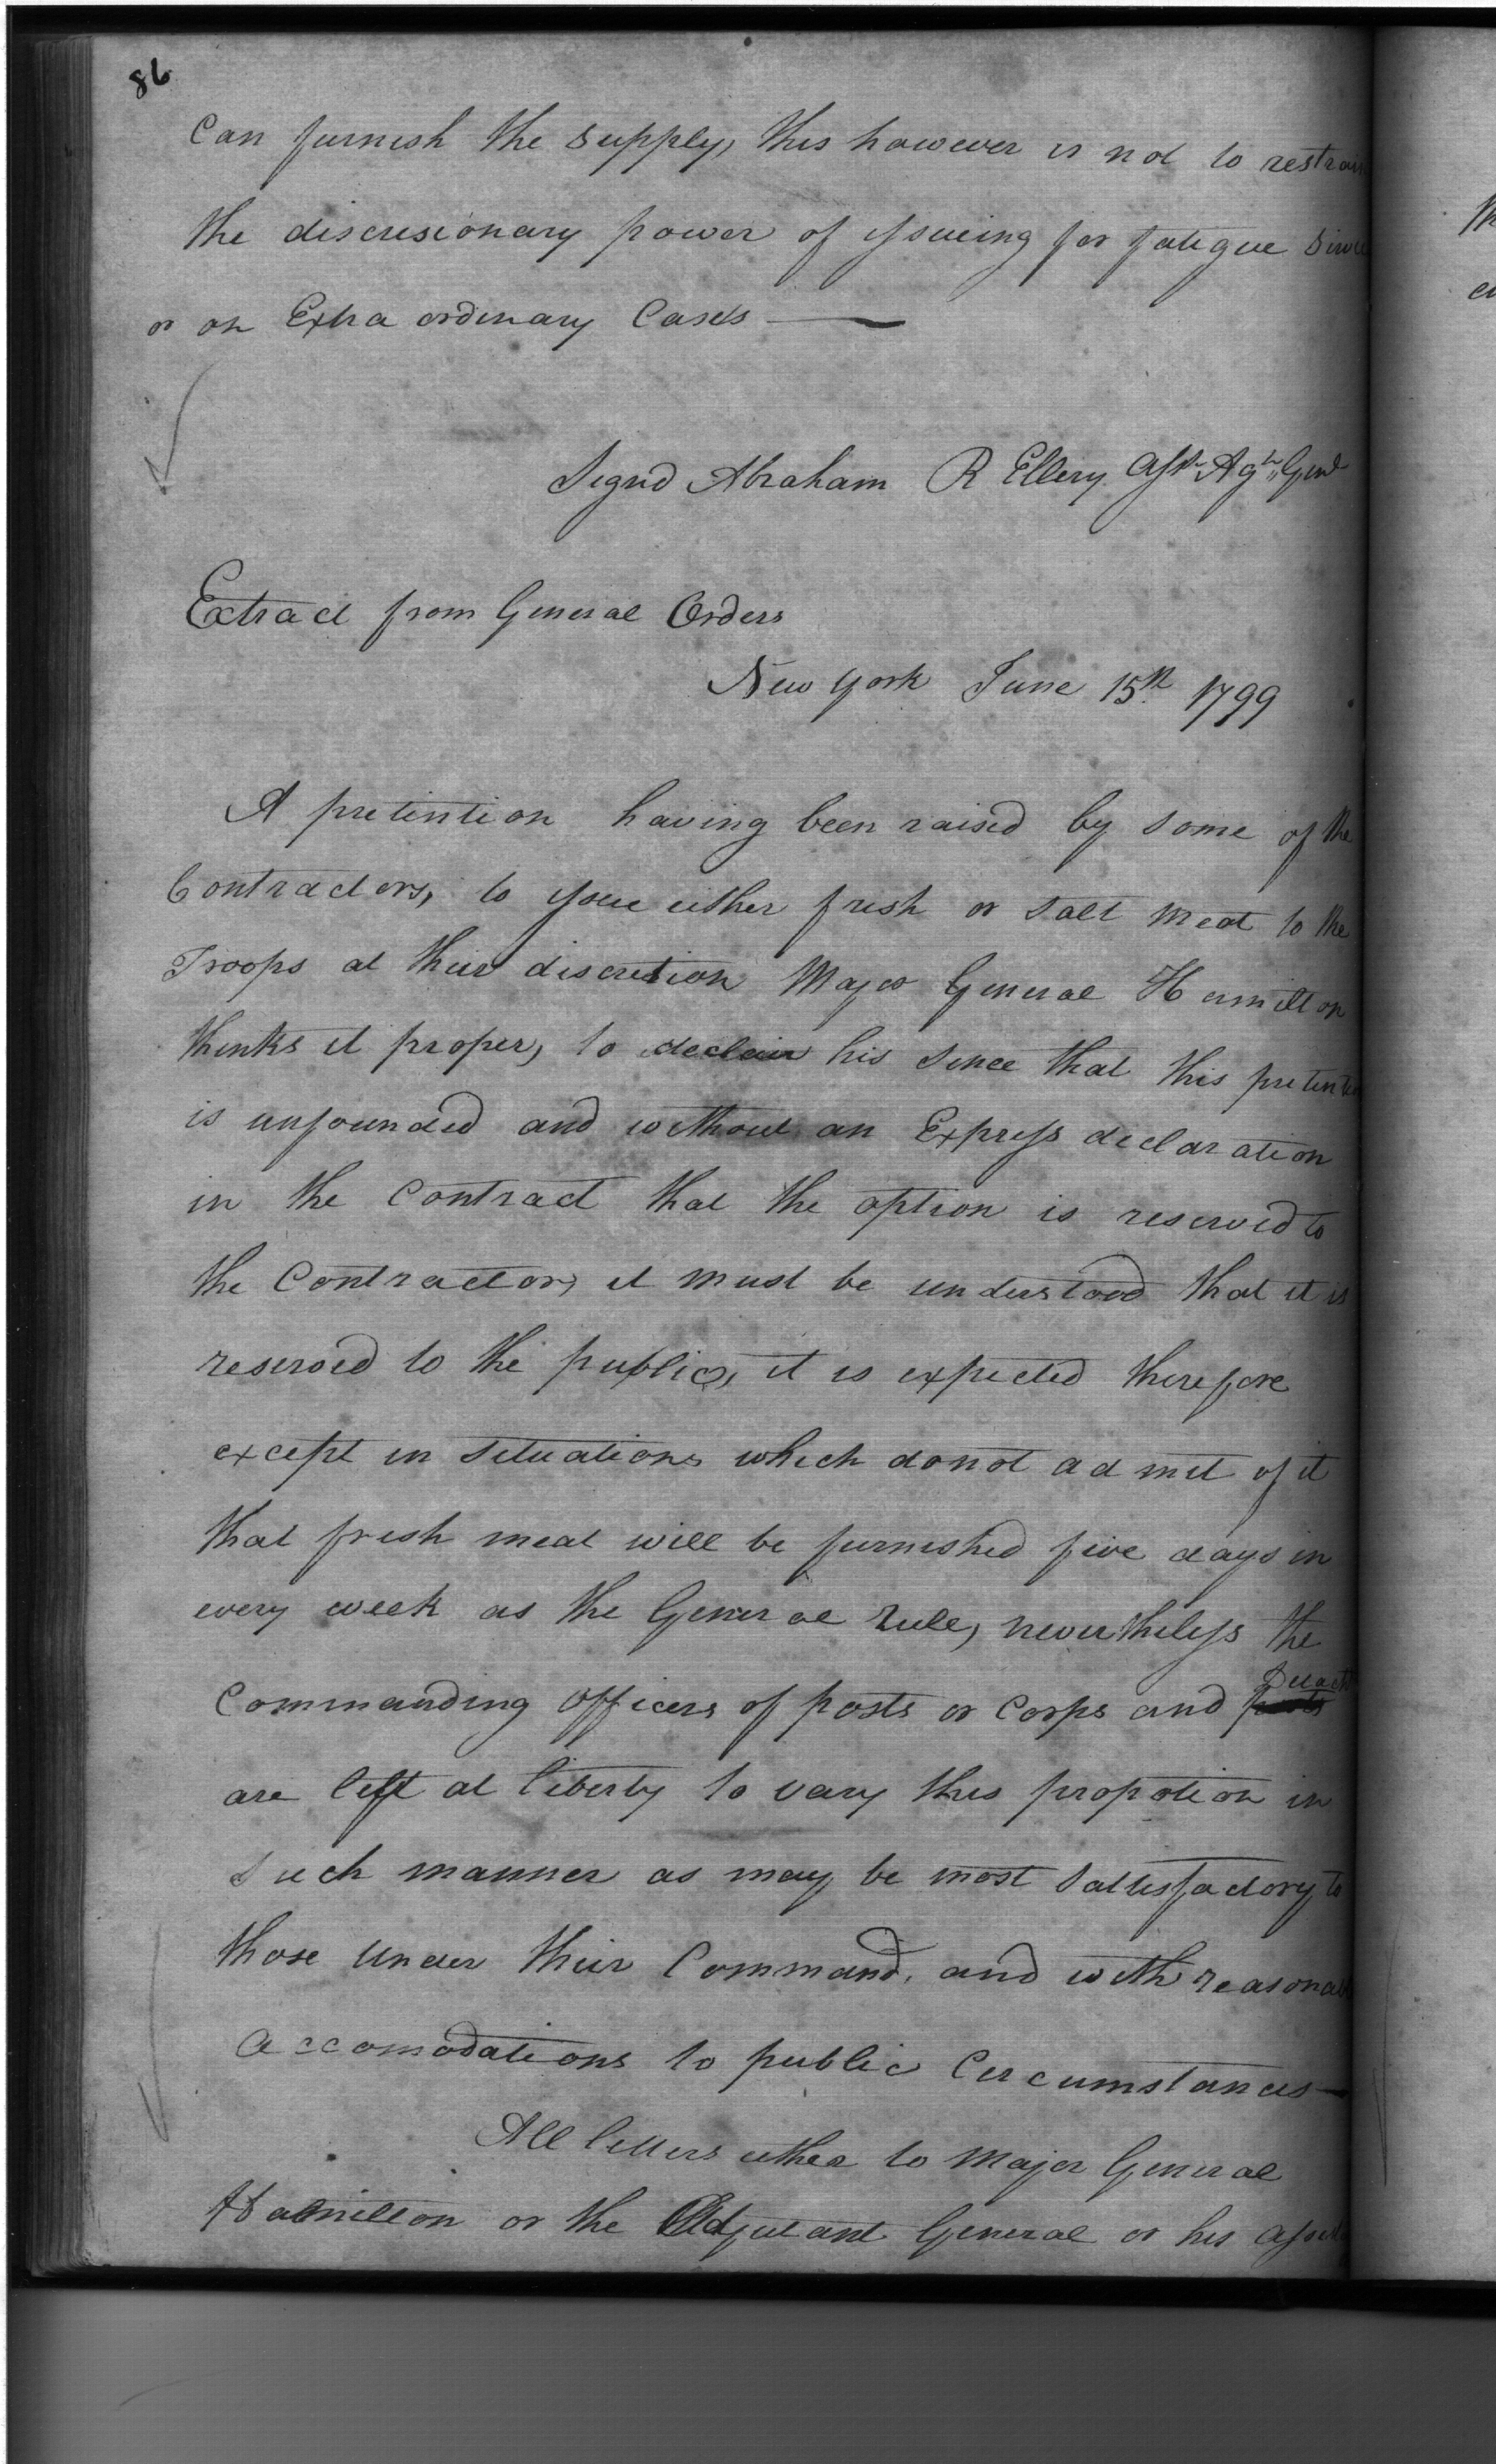 86
Can furnish the supply, this however is not to restrain
the discresionary power of issueing for fatigue
or on Extra ordinary Cases —
Signd Abraham R Ellery Asst Agt Genl
Extract from General Orders
New york June 15th 1799
A pretintion having been raised by some of the
Contractors, to issue either fresh or salt meat to the
Troops at their discretion Major General Hamilton
thinks it proper, to declair his sence that this pretention
is unfounded and without an Express declaration
in the Contract that the option is reserved to
the Contractor, it must be understood that it is
reserved to the public, it is expected therefore
except in situations which do not admit of it
that fresh meat will be furnished five days in
every week as the General rule, nevertheless the
Commanding officers of posts or Corps and Detach
are left at liberty to vary this propotion in
such manner as may be most sattisfactory to
those under their Command, and with reasonab
accomodations to public Circumstances —
All letters either to Major General
Hamilton or the Adjutant General or his